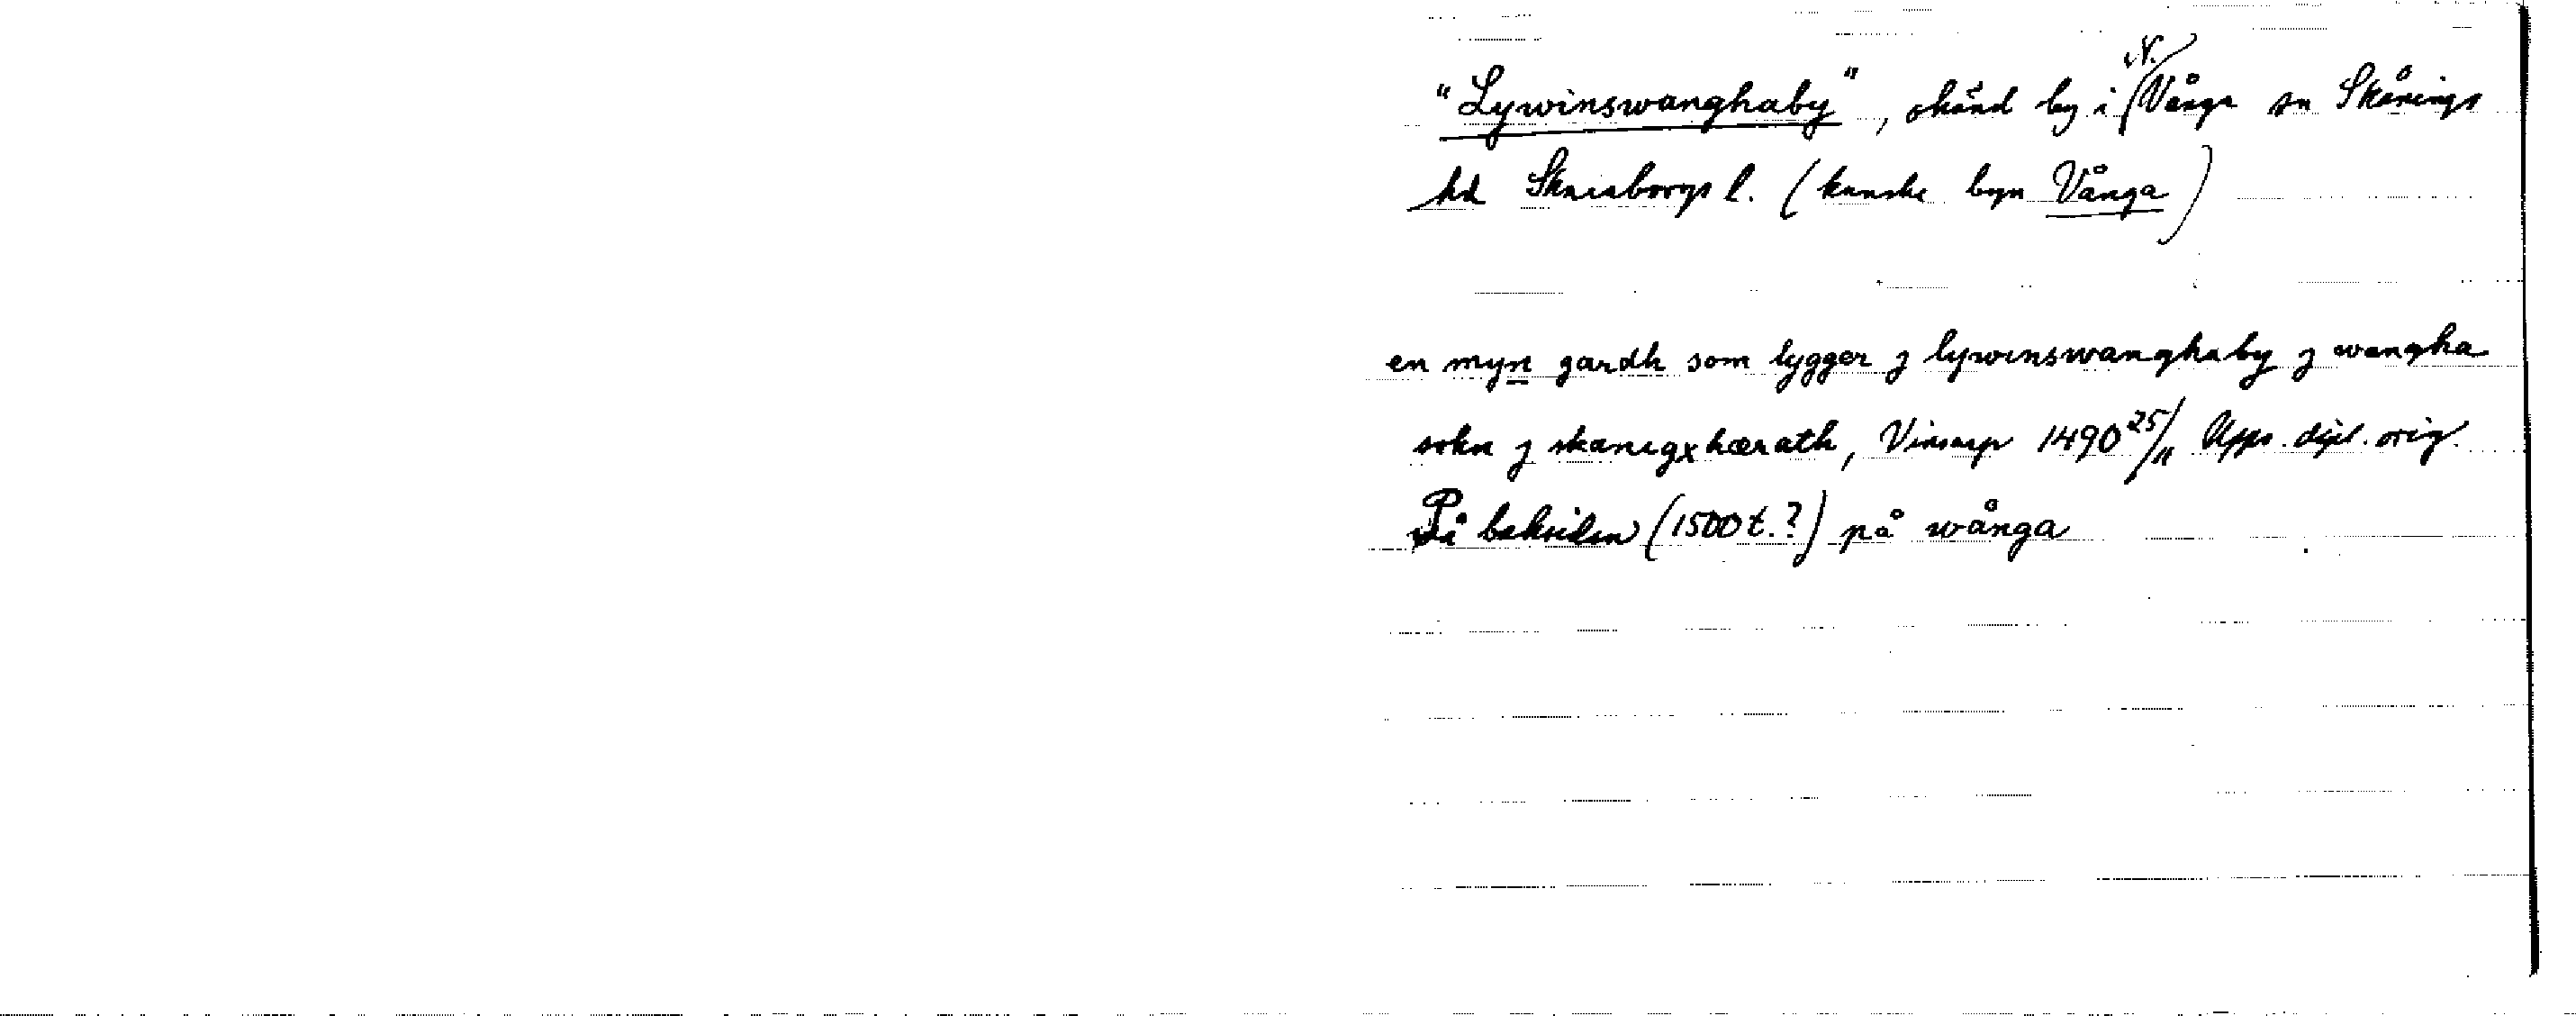 "Lywinswanghaby", okänd by i N. Vånga sn Skånings
hd Skaraborgs l. (kanske byn Vånga)
en myn gardh som lygger j lywinswanghaby j wangha
sokn j skanigx hærath, Vinsarp 1490 25/11 Upps. dipl. orig.
På baksidan (1500 t.?) på wånga